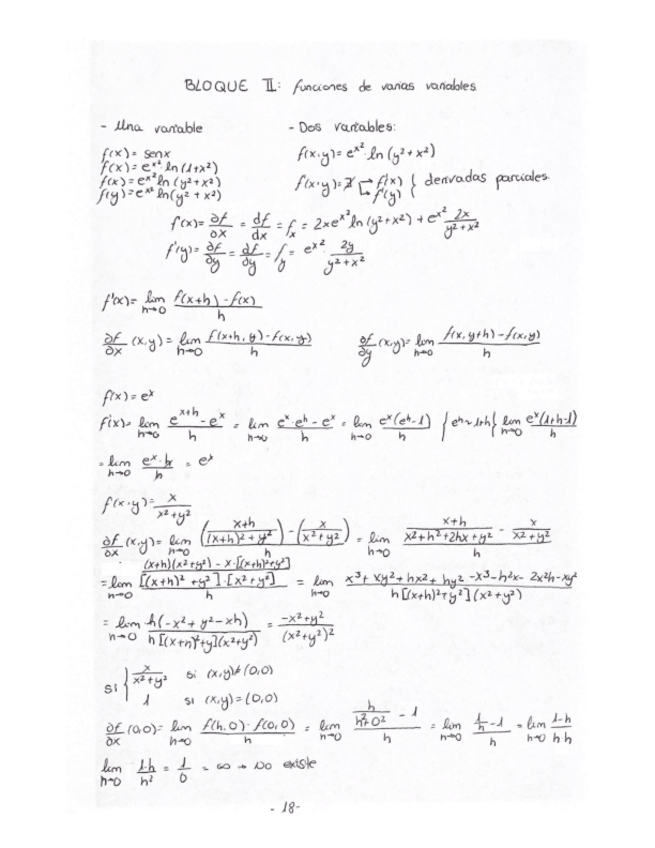 BLOQUE II: funciones de varias variables.
- Una variable
- Dos variables:
f(x) = senx
f(x) = e^x² ln(1+x²)
f(x) = e^x² ln(y²+x²)
f(y) = e^x² ln(y²+x²)
f(x·y) = e^x² · ln(y²+x²)
f(x·y) = → f'(x) → f'(y) } derivadas parciales.
f'(x) = ∂f/∂x = df/dx = f_x = 2xe^x² ln(y²+x²) + e^x² 2x/(y²+x²)
f'(y) = ∂f/∂y = df/dy = f_y = e^x² · 2y/(y²+x²)
f'(x) = lim h→0 (f(x+h) - f(x))/h
∂f/∂x (x,y) = lim h→0 (f(x+h, y) - f(x,y))/h
∂f/∂y (x,y) = lim h→0 (f(x, y+h) - f(x,y))/h
f(x) = e^x
f'(x) = lim h→0 (e^(x+h) - e^x)/h = lim h→0 (e^x · e^h - e^x)/h = lim h→0 e^x(e^h - 1)/h { e^h ≈ 1+h } lim h→0 e^x(1+h-1)/h
= lim h→0 (e^x · h)/h = e^x
f(x·y) = x/(x²+y²)
∂f/∂x (x,y) = lim h→0 ((x+h)/((x+h)²+y²)) - (x/(x²+y²))/h = lim h→0 ((x+h)/(x²+h²+2hx+y²) - x/(x²+y²))/h
= lim h→0 ((x+h)(x²+y²) - x·[(x+h)²+y²])/([(x+h)²+y²]·[x²+y²])/h = lim h→0 (x³+xy²+hx²+hy²-x³-h²x-2x²h-xy²)/(h[(x+h)²+y²](x²+y²))
= lim h→0 h(-x²+y²-xh)/(h[(x+h)²+y](x²+y²)) = (-x²+y²)/(x²+y²)²
si { x/(x²+y²) si (x,y)≠(0,0)
1 si (x,y)=(0,0)
∂f/∂x (0,0) = lim h→0 (f(h,0) - f(0,0))/h = lim h→0 (h/(h²+0²) - 1)/h = lim h→0 (1/h - 1)/h = lim h→0 (1-h)/(h·h)
lim h→0 (1-h)/h² = 1/0 = ∞ → No existe
- 18 -